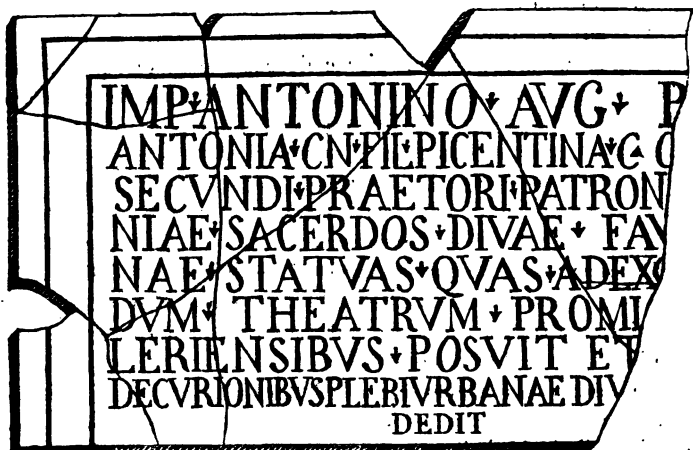 IMP · ANTONINO · AVG · P
ANTONIA · CN · FIL · PICENTINA · C
SECVNDI · PRAETORI · PATRON
NIAE · SACERDOS · DIVAE · FAV
NAE · STATVAS · QVAS · ADEX
DVM · THEATRVM · PROMI
LERIENSIBVS · POSVIT ET
DECVRIONIBVSPLEBIVRBANAE DIV
DEDIT